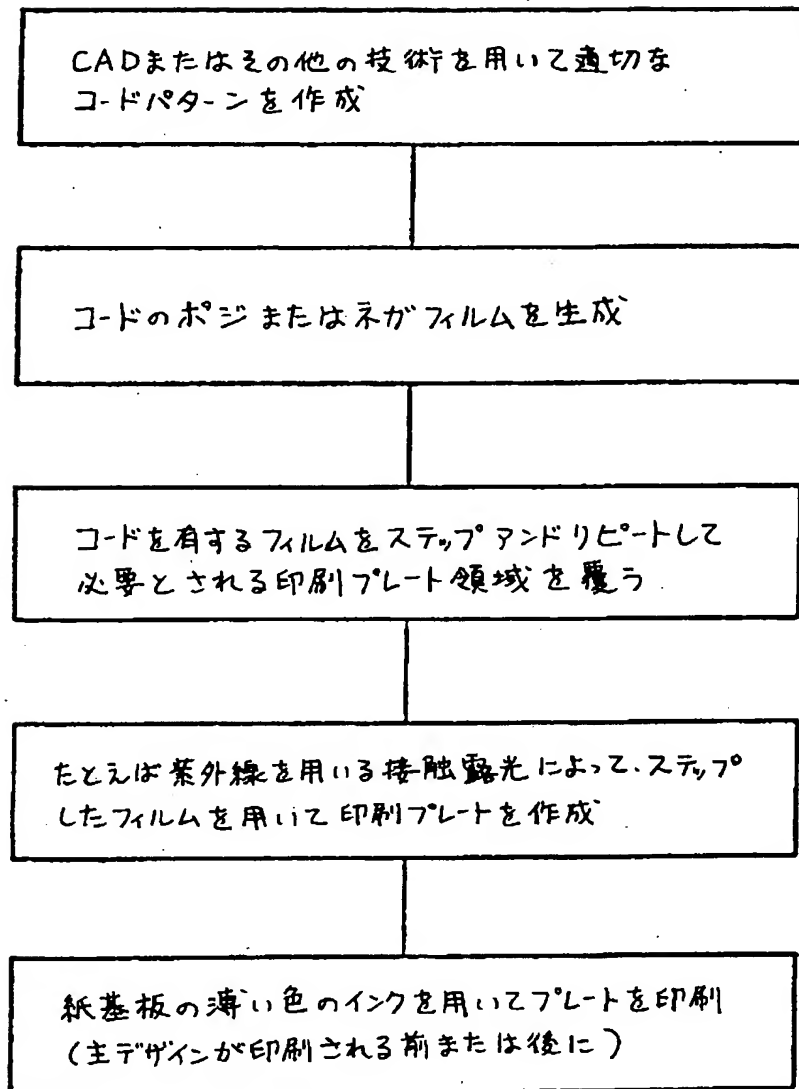 CADまたはその他の技術を用いて適切な
コードパターンを作成
コードのポジまたはネガフィルムを生成
コードを有するフィルムをステップアンドリピートして
必要とされる印刷プレート領域を覆う
たとえば紫外線を用いる接触露光によって、ステップ
したフィルムを用いて印刷プレートを作成
紙基板の薄い色のインクを用いてプレートを印刷
(主デザインが印刷される前または後に)